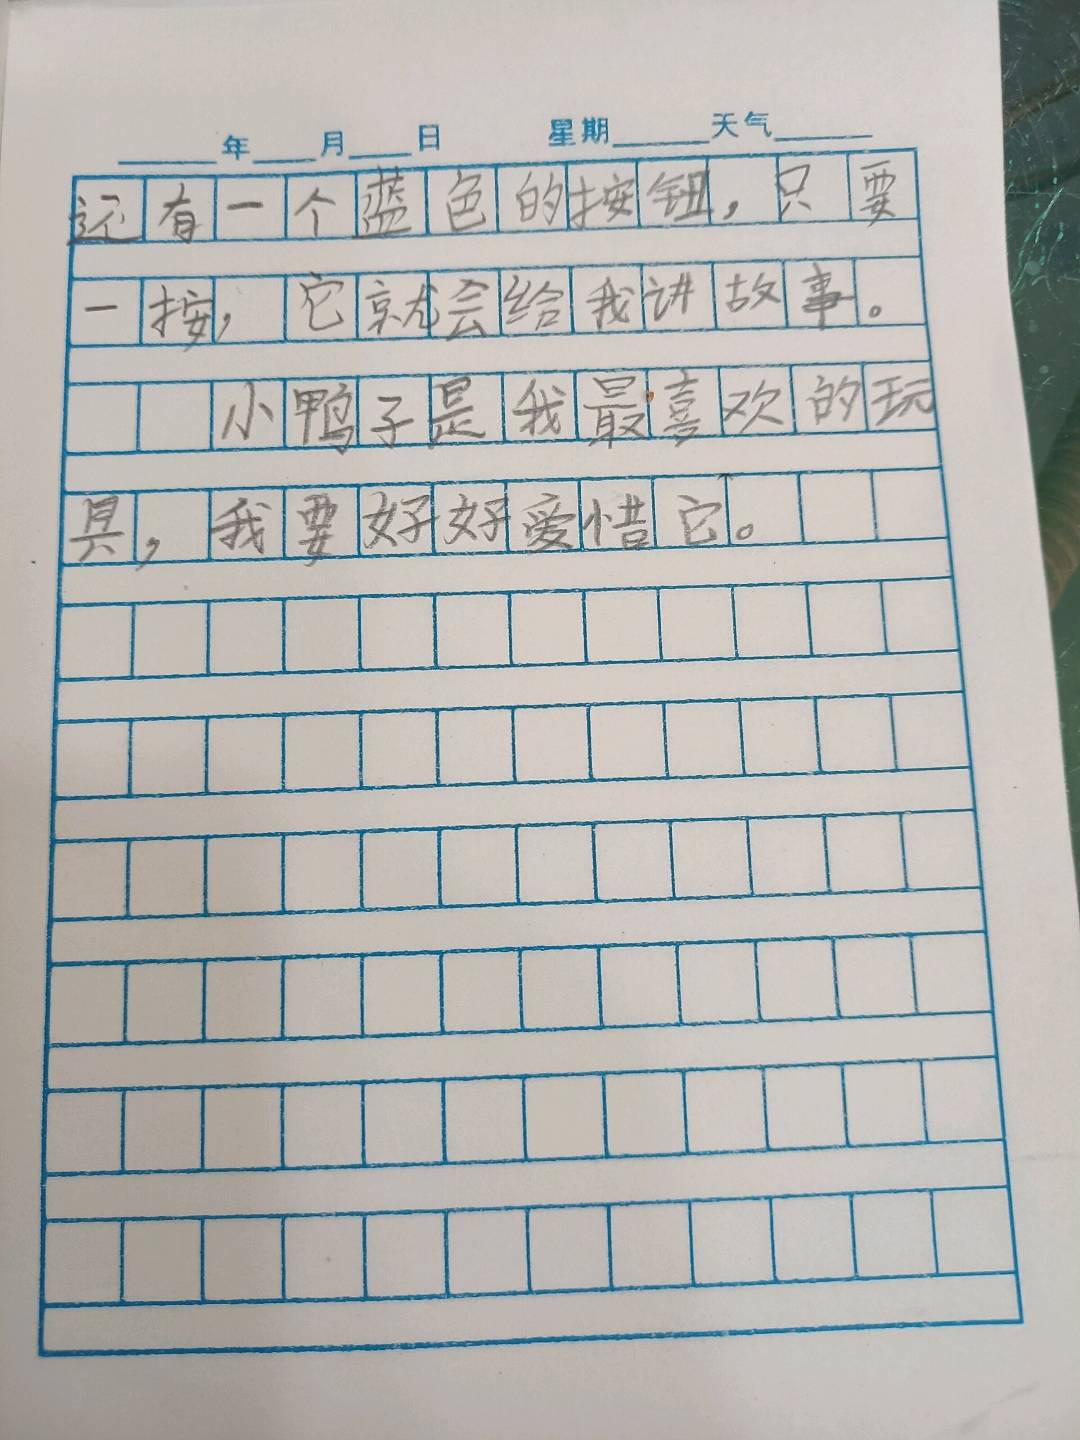 年 月 日 星期 天气
还有一个蓝色的按钮，只要
一按，它就会给我讲故事。
小鸭子是我最喜欢的玩
具，我要好好爱惜它。